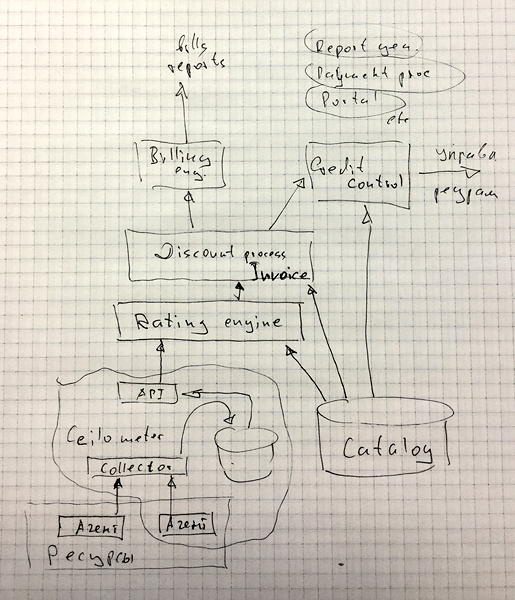 bills
reports
Report gen.
Paymacht proc
Portal
etc
Billing
eng.
Credit
control
управа
ресурам
Discount process
Invoice
Rating engine
API
Ceilometer
Collector
Catalog
Агент
Агент
Ресурсы